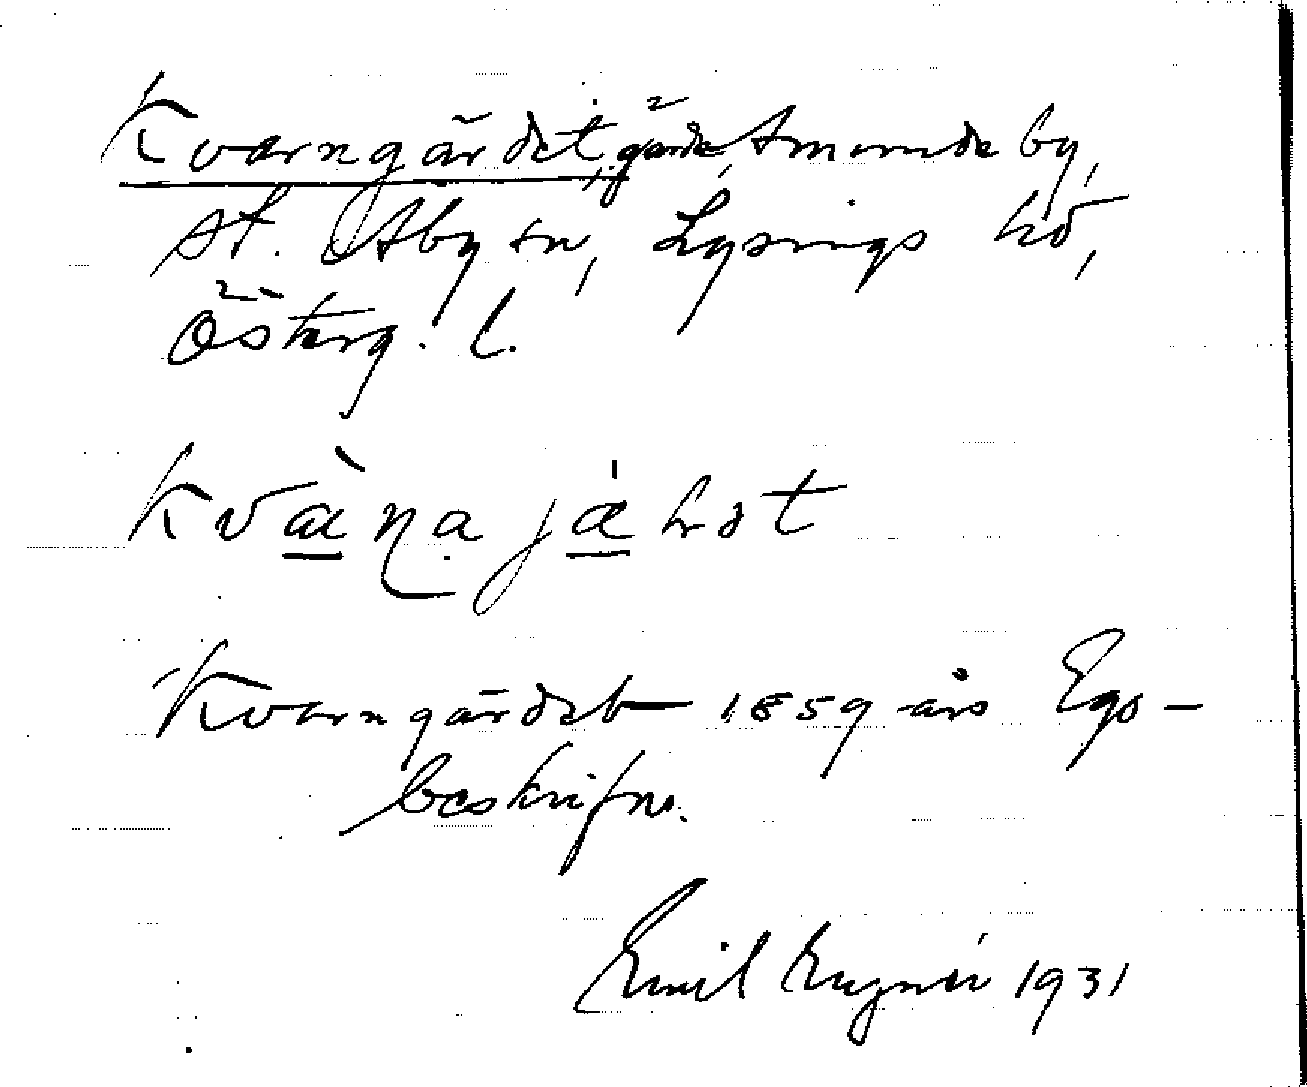 Kvarngärdet, gärde, Amunde by,
St. Åby sn, Lysings hd,
Österg. l.
Kvæ̀ṇa jæ̍ hət
Kvarngärdet 1859 års Ego-
beskrifn.
Emil 1931